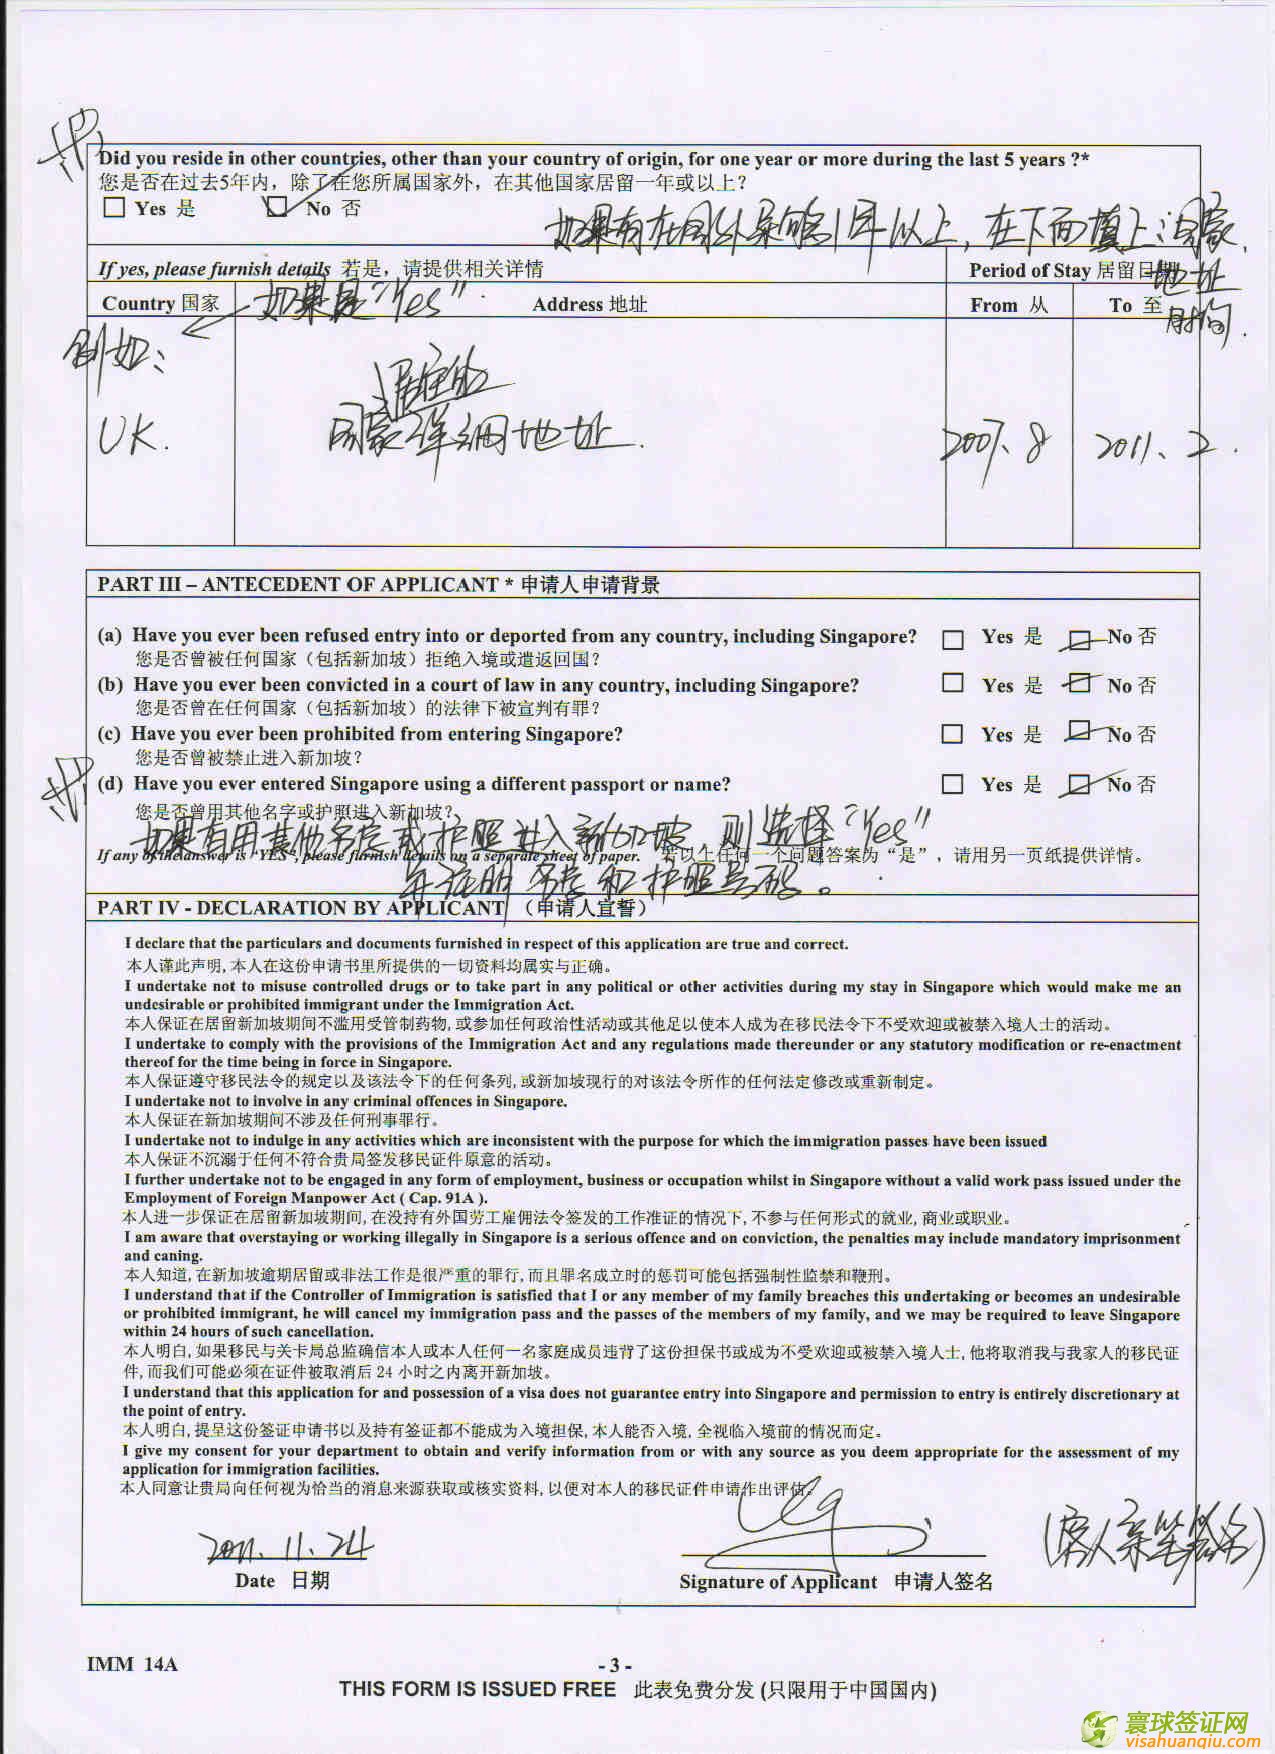 Did you reside in other countries, other than your country of origin, for one year or more during the last 5 years ?*
您是否在过去5年内，除了在您所属国家外，在其他国家居留一年或以上？
Yes 是 No 否
如果有在国外 1年以上，在下面填上：国家，
地址
时间.
If yes, please furnish details 若是，请提供相关详情 Period of Stay 居留日期
Country 国家 如果是"Yes". Address 地址 From 从 To 至
例如：
居住的
UK. 国家详细地址. 2007.8 2011.2.
PART III – ANTECEDENT OF APPLICANT * 申请人申请背景
(a) Have you ever been refused entry into or deported from any country, including Singapore? Yes 是 No 否
您是否曾被任何国家（包括新加坡）拒绝入境或遣返回国？
(b) Have you ever been convicted in a court of law in any country, including Singapore? Yes 是 No 否
您是否曾在任何国家（包括新加坡）的法律下被宣判有罪？
(c) Have you ever been prohibited from entering Singapore? Yes 是 No 否
您是否曾被禁止进入新加坡？
(d) Have you ever entered Singapore using a different passport or name? Yes 是 No 否
您是否曾用其他名字或护照进入新加坡？
如果有用其他名字或护照进入新加坡，则选择"Yes"
If any of the answer is "YES", please furnish details on a separate sheet of paper. 若以上任何一个问题答案为“是”，请用另一页纸提供详情。
并注明名字和护照号码。
PART IV - DECLARATION BY APPLICANT （申请人宣誓）
I declare that the particulars and documents furnished in respect of this application are true and correct.
本人谨此声明, 本人在这份申请书里所提供的一切资料均属实与正确。
I undertake not to misuse controlled drugs or to take part in any political or other activities during my stay in Singapore which would make me an
undesirable or prohibited immigrant under the Immigration Act.
本人保证在居留新加坡期间不滥用受管制药物, 或参加任何政治性活动或其他足以使本人成为在移民法令下不受欢迎或被禁入境人士的活动。
I undertake to comply with the provisions of the Immigration Act and any regulations made thereunder or any statutory modification or re-enactment
thereof for the time being in force in Singapore.
本人保证遵守移民法令的规定以及该法令下的任何条列, 或新加坡现行的对该法令所作的任何法定修改或重新制定。
I undertake not to involve in any criminal offences in Singapore.
本人保证在新加坡期间不涉及任何刑事罪行。
I undertake not to indulge in any activities which are inconsistent with the purpose for which the immigration passes have been issued
本人保证不沉溺于任何不符合贵局签发移民证件原意的活动。
I further undertake not to be engaged in any form of employment, business or occupation whilst in Singapore without a valid work pass issued under the
Employment of Foreign Manpower Act ( Cap. 91A ).
本人进一步保证在居留新加坡期间, 在没持有外国劳工雇佣法令签发的工作准证的情况下, 不参与任何形式的就业, 商业或职业。
I am aware that overstaying or working illegally in Singapore is a serious offence and on conviction, the penalties may include mandatory imprisonment
and caning.
本人知道, 在新加坡逾期居留或非法工作是很严重的罪行, 而且罪名成立时的惩罚可能包括强制性监禁和鞭刑。
I understand that if the Controller of Immigration is satisfied that I or any member of my family breaches this undertaking or becomes an undesirable
or prohibited immigrant, he will cancel my immigration pass and the passes of the members of my family, and we may be required to leave Singapore
within 24 hours of such cancellation.
本人明白, 如果移民与关卡局总监确信本人或本人任何一名家庭成员违背了这份担保书或成为不受欢迎或被禁入境人士, 他将取消我与我家人的移民证
件, 而我们可能必须在证件被取消后 24 小时之内离开新加坡。
I understand that this application for and possession of a visa does not guarantee entry into Singapore and permission to entry is entirely discretionary at
the point of entry.
本人明白, 提呈这份签证申请书以及持有签证都不能成为入境担保, 本人能否入境, 全视临入境前的情况而定。
I give my consent for your department to obtain and verify information from or with any source as you deem appropriate for the assessment of my
application for immigration facilities.
本人同意让贵局向任何视为恰当的消息来源获取或核实资料, 以便对本人的移民证件申请作出评估。
2011.11.24 (客人亲笔签名)
Date 日期 Signature of Applicant 申请人签名
IMM 14A - 3 -
THIS FORM IS ISSUED FREE 此表免费分发 (只限用于中国国内)
寰球签证网
visahuanqiu.com